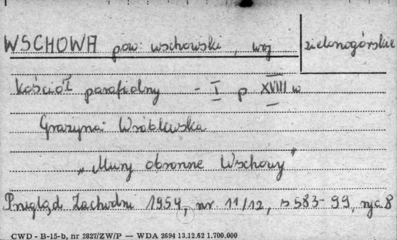 WSCHOWA pow. wschowski, woj zielonogórskie
Kościół parafialny - I p XVIII w
Grażyna Wróblewska
„Mury obronne Wschowy"
Przegląd Zachodni 1954, nr. 11/12, s 583-99, ryc. 8
CWD - B-15-b, nr 2827/ZW/P — WDA 2694 13.12.62 1.700.000